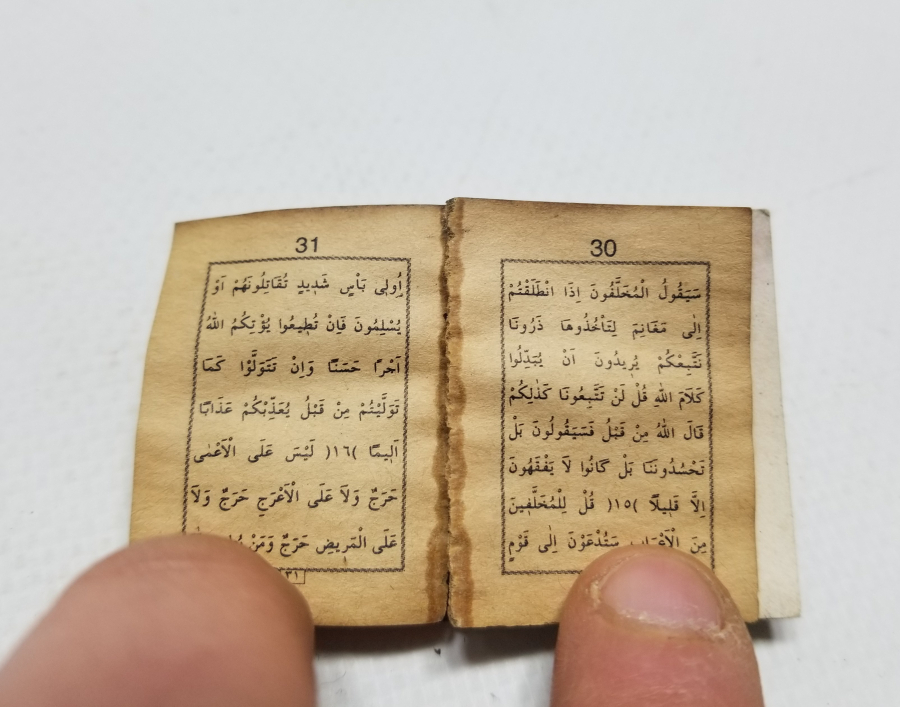 30
سَيَقُولُ الْمُخَلَّفُونَ اِذَا انْطَلَقْتُمْ
اِلٰى مَغَانِمَ لِتَاْخُذُوهَا ذَرُونَا
نَتَّبِعْكُمْ يُرِيدُونَ اَنْ يُبَدِّلُوا
كَلَامَ اللّٰهِ قُلْ لَنْ تَتَّبِعُونَا كَذٰلِكُمْ
قَالَ اللّٰهُ مِنْ قَبْلُ فَسَيَقُولُونَ بَلْ
تَحْسُدُونَنَا بَلْ كَانُوا لَا يَفْقَهُونَ
اِلَّا قَلِيلًا )١٥( قُلْ لِلْمُخَلَّفِينَ
مِنَ الْاَعْرَابِ سَتُدْعَوْنَ اِلٰى قَوْمٍ
31
اُولِى بَاْسٍ شَدِيدٍ تُقَاتِلُونَهُمْ اَوْ
يُسْلِمُونَ فَاِنْ تُطِيعُوا يُؤْتِكُمُ اللّٰهُ
اَجْرًا حَسَنًا وَاِنْ تَتَوَلَّوْا كَمَا
تَوَلَّيْتُمْ مِنْ قَبْلُ يُعَذِّبْكُمْ عَذَابًا
اَلِيمًا )١٦( لَيْسَ عَلَى الْاَعْمٰى
حَرَجٌ وَلَا عَلَى الْاَعْرَجِ حَرَجٌ وَلَا
عَلَى الْمَرِيضِ حَرَجٌ وَمَنْ
٣١